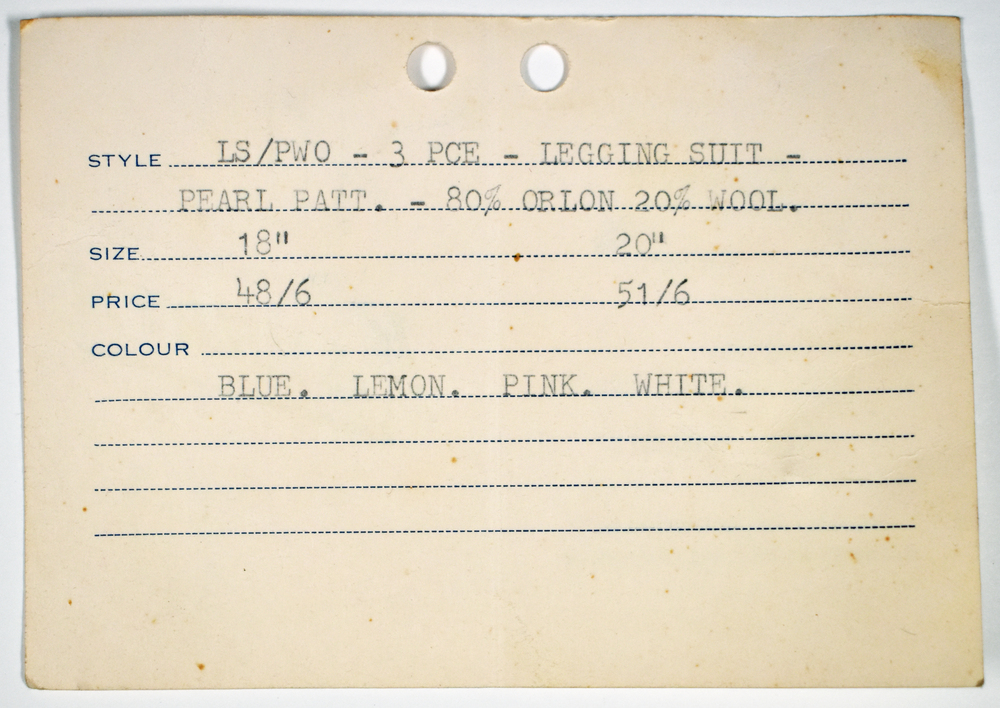 STYLE LS/PWO - 3 PCE - LEGGING SUIT -
PEARL PATT. - 80% ORLON 20% WOOL.
SIZE 18" 20"
PRICE 48/6 51/6
COLOUR
BLUE. LEMON. PINK. WHITE.